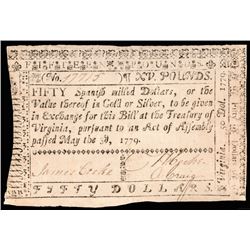 FIFTY
(No. 17715) XV. POUNDS.
FIFTY Spanish milled Dollars, or
the Value thereof in Gold or Silver, to be given
in Exchange for this Bill at the Treasury of
Virginia, pursuant to an Act of Assembly
passed May the 3d, 1779.
James Cocke
Craig
FIFTY DOLLARS.
Virginia. 50 Dol. 1779.